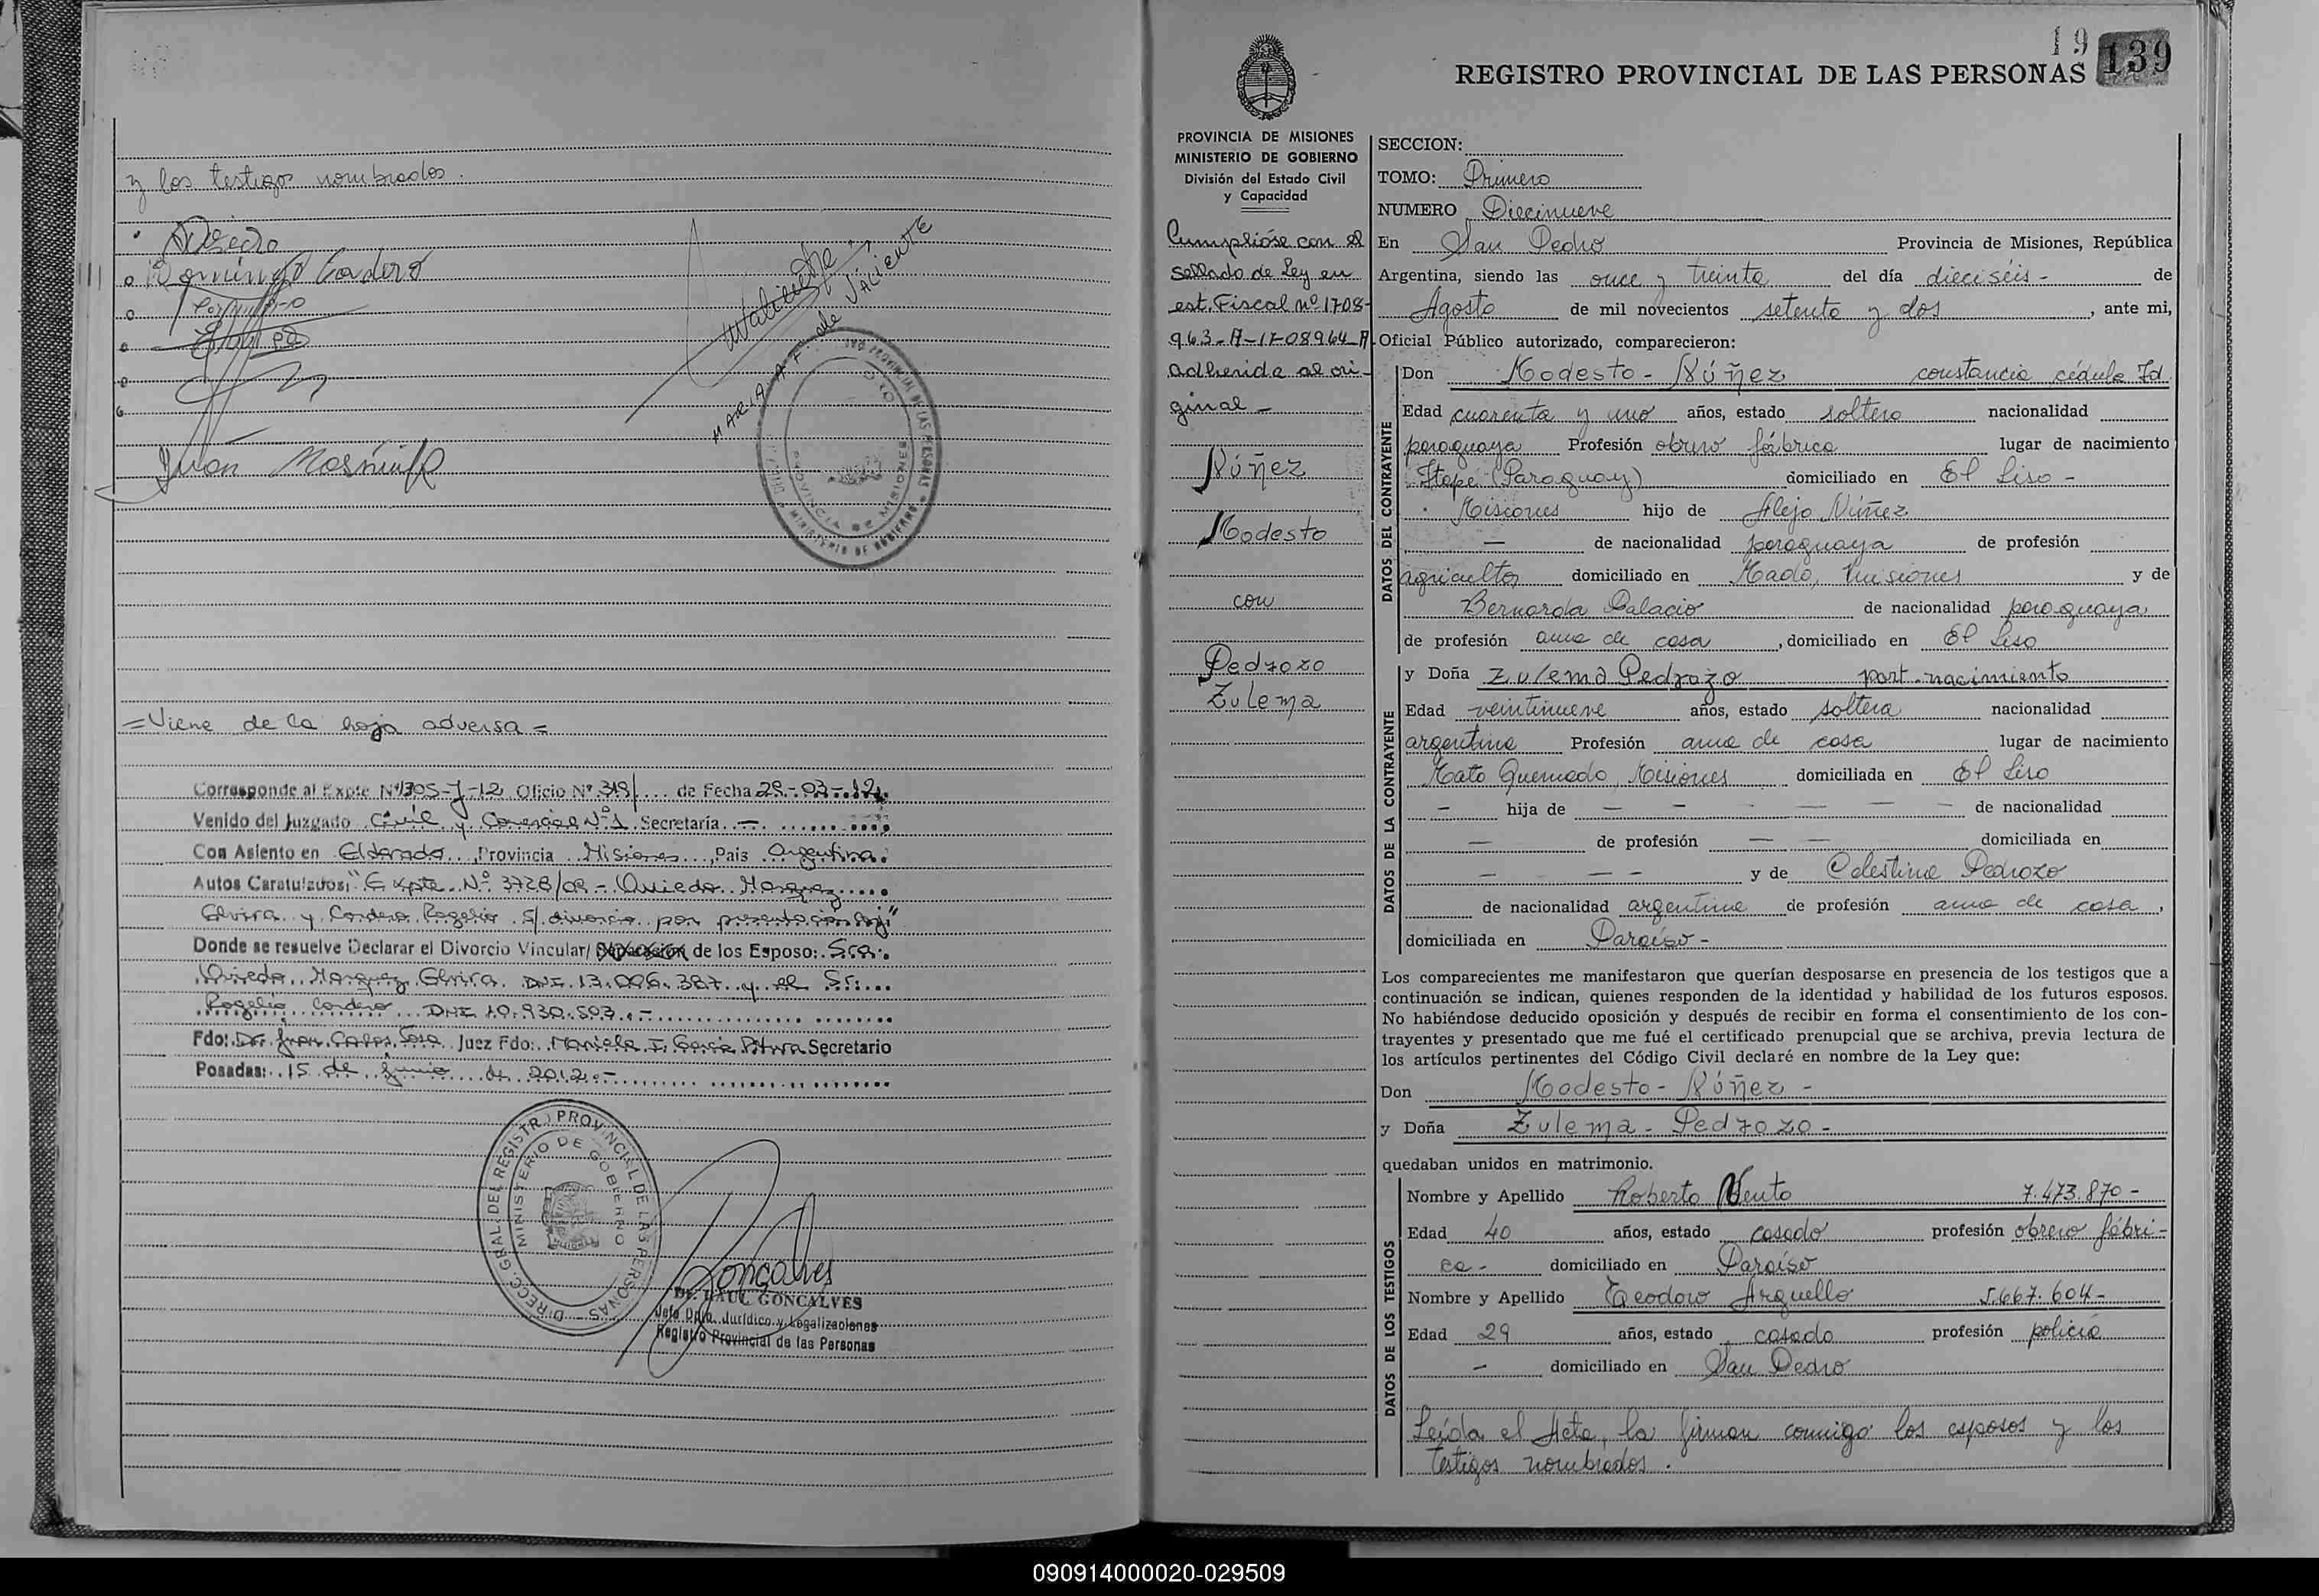 y los testigos nombrados.
Domingo Cordero
MARIA A. F. de VALIENTE
REGISTRO PROVINCIAL DE LAS PERSONAS
MINISTERIO DE GOBIERNO
PROVINCIA DE MISIONES
= Viene de la hoja adversa =
Corresponde al Expte Nº 1305-J-12 Oficio Nº 319/ de Fecha 29-03-12.
Venido del Juzgado Civil y Comercial Nº 1 Secretaría. -
Con Asiento en Eldorado, Provincia Misiones, Pais Argentina.
Autos Caratulados: "Expte. Nº 3728/09 - Oviedo Marquez
Elvira y Cordero Rogelio S/ divorcio por presentación conj."
Donde se resuelve Declarar el Divorcio Vincular/ de los Esposo: Sra.
Oviedo Marquez Elvira DNI. 13.006.387 y el Sr.
Rogelio Cordero DNI 10.930.503.-
Fdo: Dr. Juan Carlos Sosa Juez Fdo: Mariela I. García Secretario
Posadas: 15 de Junio de 2012.-
DIRECC. GRAL. DEL REGISTRO PROVINCIAL DE LAS PERSONAS
MINISTERIO DE GOBIERNO
Dr. RAUL GONCALVES
Jefe Dpto. Jurídico y Legalizaciones
Registro Provincial de las Personas
19
139
REGISTRO PROVINCIAL DE LAS PERSONAS
PROVINCIA DE MISIONES
MINISTERIO DE GOBIERNO
División del Estado Civil
y Capacidad
Cumplióse con el
sellado de Ley en
est. Fiscal nº 1708-
963-A-1708964-A
adherida al ori-
ginal -
Núñez
Modesto
con
Pedrozo
Zulema
SECCION:
TOMO: Primero
NUMERO Diecinueve
En San Pedro Provincia de Misiones, República
Argentina, siendo las once y treinta del día dieciséis - de
Agosto de mil novecientos setenta y dos, ante mi,
Oficial Público autorizado, comparecieron:
DATOS DEL CONTRAYENTE
Don Modesto - Núñez constancia cédula Id.
Edad cuarenta y uno años, estado soltero nacionalidad
paraguaya Profesión obrero fábrica lugar de nacimiento
Itapé (Paraguay) domiciliado en El Liso -
Misiones hijo de Alejo Núñez
- de nacionalidad paraguaya de profesión
agricultor domiciliado en Mado, Misiones y de
Bernarda Palacio de nacionalidad paraguaya
de profesión ama de casa, domiciliado en El Liso
DATOS DE LA CONTRAYENTE
y Doña Zulema Pedrozo part. nacimiento
Edad veintinueve años, estado soltera nacionalidad
argentina Profesión ama de casa lugar de nacimiento
Mato Quemado, Misiones domiciliada en El Liso
- hija de - - - - - de nacionalidad
- de profesión - - domiciliada en
- - - y de Celestina Pedrozo
de nacionalidad argentina de profesión ama de casa,
domiciliada en Paraíso -
Los comparecientes me manifestaron que querían desposarse en presencia de los testigos que a
continuación se indican, quienes responden de la identidad y habilidad de los futuros esposos.
No habiéndose deducido oposición y después de recibir en forma el consentimiento de los con-
trayentes y presentado que me fué el certificado prenupcial que se archiva, previa lectura de
los artículos pertinentes del Código Civil declaré en nombre de la Ley que:
Don Modesto - Núñez -
y Doña Zulema - Pedrozo -
quedaban unidos en matrimonio.
DATOS DE LOS TESTIGOS
Nombre y Apellido Roberto Vento 7.473.870 -
Edad 40 años, estado casado profesión obrero fábri-
ca - domiciliado en Paraíso
Nombre y Apellido Teodoro Arguello 5.667.604 -
Edad 29 años, estado casado profesión policía
- domiciliado en San Pedro
Leída el Acta, la firman conmigo los esposos y los
testigos nombrados.
090914000020-029509